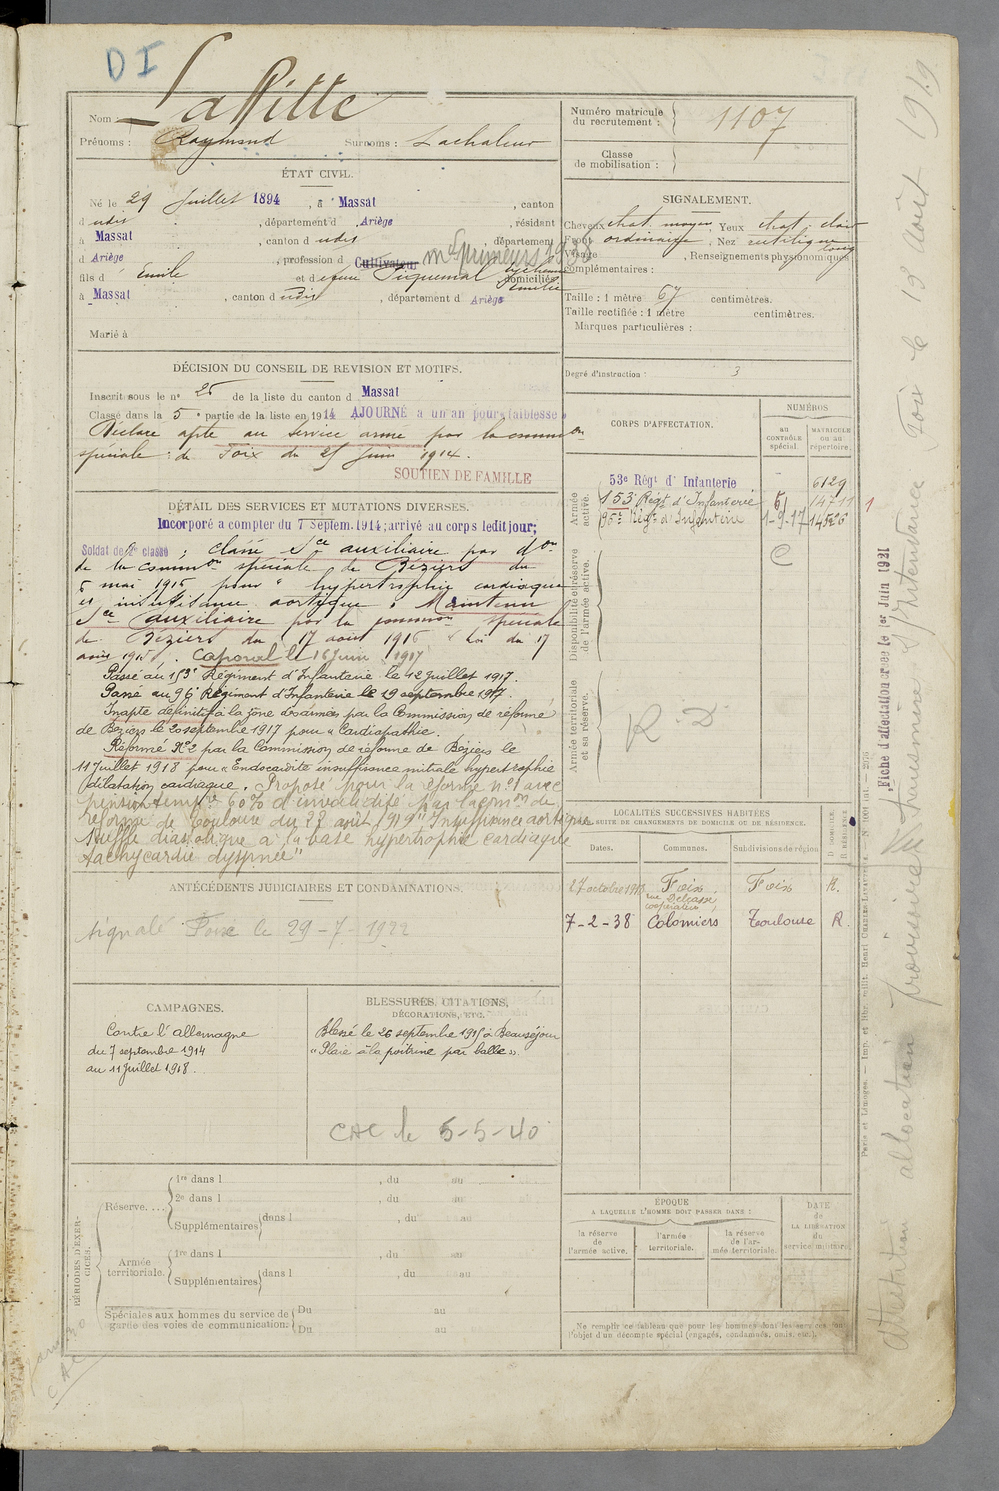 DI
Nom : Laffitte
Prénoms : Raymond Surnoms : Lachaleur
ÉTAT CIVIL.
Né le 29 Juillet 1894, à Massat, canton
d udis, département d Ariège, résidant
à Massat, canton d udis, département
d Ariège, profession d Cultivateur md primeurs 1938
fils d Emile et d feue Piquemal domiciliés
à Massat, canton d udis, département d Ariège
Marié à
DÉCISION DU CONSEIL DE REVISION ET MOTIFS.
Inscrit sous le n° 25 de la liste du canton d Massat
Classé dans la 5e partie de la liste en 1914 AJOURNÉ à un an pour faiblesse
Déclaré apte au service armé par la common
spéciale de Foix du 25 Juin 1914.
SOUTIEN DE FAMILLE
DÉTAIL DES SERVICES ET MUTATIONS DIVERSES.
Incorporé a compter du 7 Septem. 1914; arrivé au corps ledit jour;
Soldat de 2e classe; classé Sce auxiliaire par don
de la common spéciale de Béziers du
5 mai 1916 pour "hypertrophie cardiaque
et insuffisance aortique. Maintenu
Sce auxiliaire par la common spéciale
de Béziers du 17 août 1916 "Loi du 17
août 1915". Caporal le 16 Juin 1917
Passé au 153e Régiment d'Infanterie le 12 juillet 1917.
Passé au 96e Régiment d'Infanterie le 19 septembre 1917.
Inapte définitif à la zone des armées par la Commission de réforme
de Béziers le 20 septembre 1917 pour "Cardiopathie.
Réformé N°2 par la Commission de réforme de Béziers le
11 Juillet 1918 pour "Endocardite insuffisance mitrale hypertrophie
dilatation cardiaque. Proposé pour la réforme n°1 avec
pension temp. 60% d'invalidité par la comon de
réforme de Toulouse du 22 août 1919 "Insuffisance aortique
souffle diastolique à la base hypertrophie cardiaque
tachycardie dyspnée"
ANTÉCÉDENTS JUDICIAIRES ET CONDAMNATIONS.
signalé Foix le 29-7-1922
CAMPAGNES.
Contre l'Allemagne
du 7 septembre 1914
au 11 Juillet 1918.
BLESSURES, CITATIONS,
DÉCORATIONS, ETC.
Blessé le 26 septembre 1915 à Beauséjour
"Plaie à la poitrine par balle".
CAC le 5-5-40
PÉRIODES D'EXERCICES.
Réserve....
1re dans l , du au
2e dans l , du au
Supplémentaires dans l , du au
Armée territoriale.
1re dans l , du au
Supplémentaires dans l , du au
Spéciales aux hommes du service de Du au
garde des voies de communication. Du au
Numéro matricule
du recrutement : 1107
Classe
de mobilisation :
SIGNALEMENT.
Cheveux chat. moyen Yeux chat. clair
Front ordinaire, Nez rectiligne
Visage long, Renseignements physionomiques
complémentaires :
Taille : 1 mètre 67 centimètres.
Taille rectifiée : 1 mètre centimètres.
Marques particulières :
Degré d'instruction : 3
CORPS D'AFFECTATION.
NUMÉROS
au CONTRÔLE spécial.
MATRICULE ou au répertoire.
Armée active.
53e Régt d'Infanterie 6129
153e Regt d'Infanterie 14711 1
96e Régt d'Infanterie 1-9-17 14526
Disponibilité et réserve de l'armée active.
C
Armée territoriale et sa réserve.
R. D.
LOCALITÉS SUCCESSIVES HABITÉES
PAR SUITE DE CHANGEMENTS DE DOMICILE OU DE RÉSIDENCE.
Dates. Communes. Subdivisions de région D DOMICILE. R RÉSIDENCE.
27 octobre Foix Foix R.
rue Delcassé
7-2-38 Colomiers Toulouse R.
ÉPOQUE
A LAQUELLE L'HOMME DOIT PASSER DANS :
la réserve de l'armée active.
l'armée territoriale.
la réserve de l'armée territoriale.
DATE de LA LIBÉRATION du service militaire.
Ne remplir ce tableau que pour les hommes dont les services font
l'objet d'un décompte spécial (engagés, condamnés, omis, etc.).
Fiche d'affectation créée le 1er Juin 1921
Attestation allocation provisoire transmise à l'Intendance Foix le 13 Août 1919
Paris et Limoges. — Imp. et libr. milit. Henri CHARLES-LAVAUZELLE.
CAC